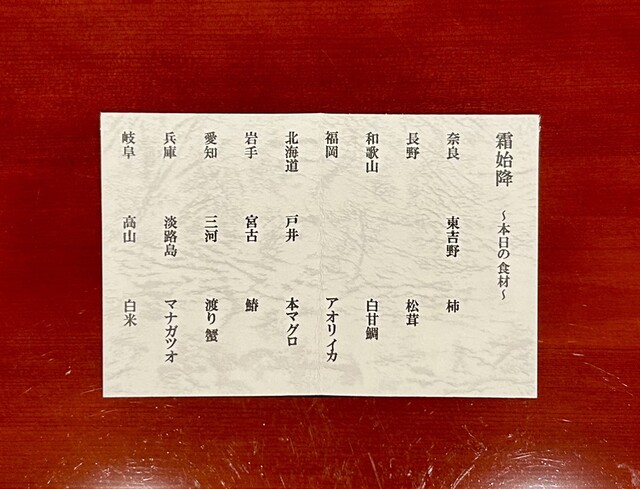 霜始降 ～本日の食材～
奈良 東吉野 柿
長野 松茸
和歌山 白甘鯛
福岡 アオリイカ
北海道 戸井 本マグロ
岩手 宮古 鰆
愛知 三河 渡り蟹
兵庫 淡路島 マナガツオ
岐阜 高山 白米